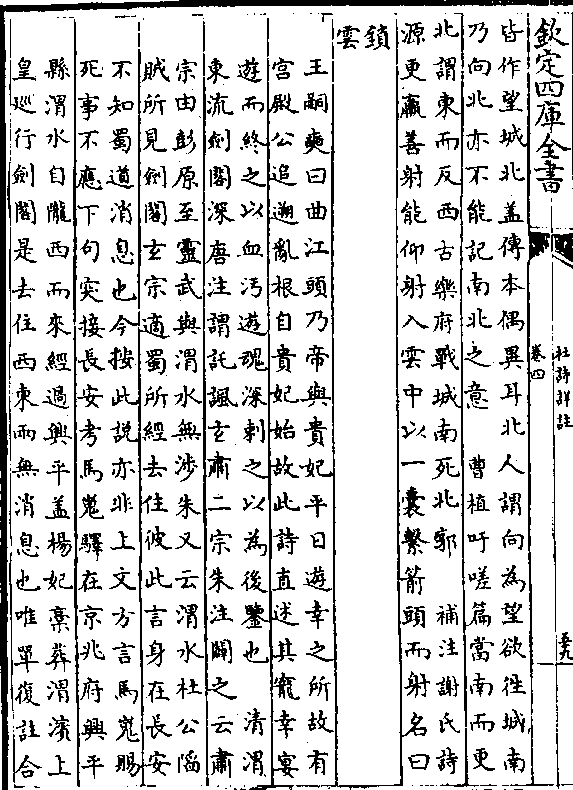 欽定四庫全書
杜詩詳註
卷四
皆作望城北盖傳本偶異耳北人謂向為望欲往城南
乃向北亦不能記南北之意 曹植吁嗟篇當南而更
北謂東而反西古樂府戰城南死北郭 補注謝氏詩
源更羸善射能仰射入雲中以一囊繫箭頭而射名曰
鎖
雲
王嗣奭曰曲江頭乃帝與貴妃平日遊幸之所故有
宫殿公追遡亂根自貴妃始故此詩直述其寵幸宴
遊而終之以血汚遊魂深刺之以為後鑒也 清渭
東流劍閣深唐注謂託諷玄肅二宗朱注闢之云肅
宗由彭原至靈武與渭水無涉朱又云渭水杜公陷
賊所見劍閣玄宗適蜀所經去住彼此言身在長安
不知蜀道消息也今按此說亦非上文方言馬嵬賜
死事不應下句突接長安考馬嵬驛在京兆府興平
縣渭水自隴西而來經過興平盖楊妃藁葬渭濱上
皇廵行劍閣是去住西東两無消息也唯單復註合